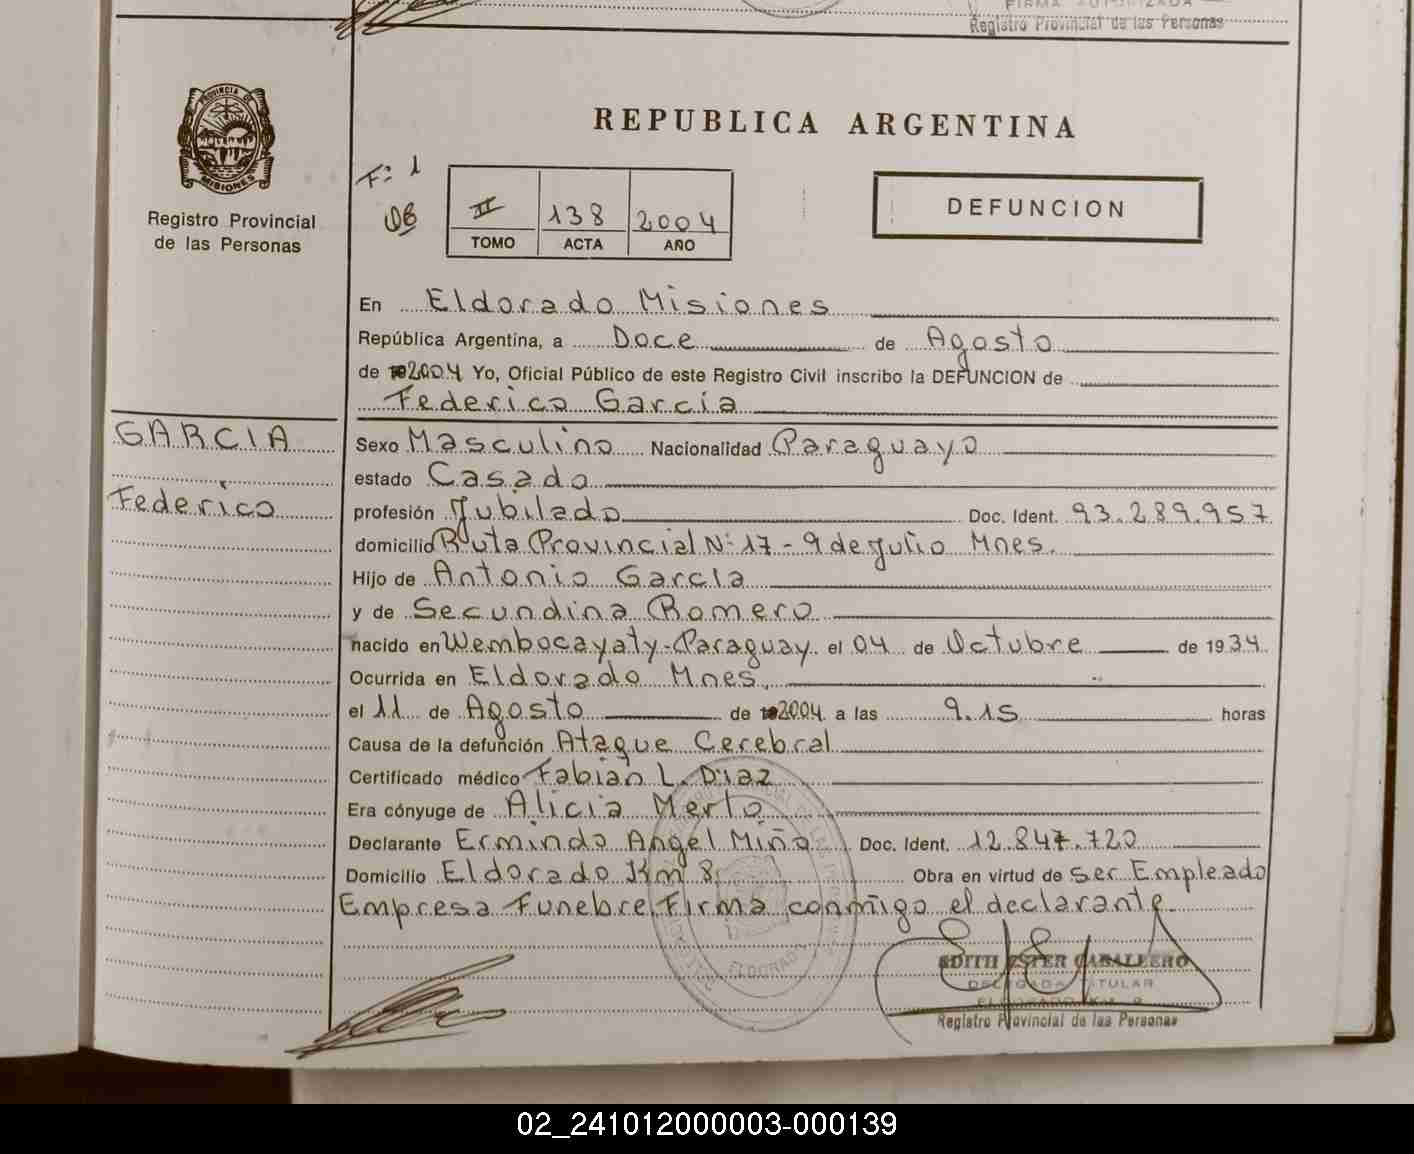 FIRMA AUTORIZADA
Registro Provincial de las Personas
PROVINCIA DE
MISIONES
Registro Provincial
de las Personas
REPUBLICA ARGENTINA
F: 1
06
II 138 2004
TOMO ACTA AÑO
DEFUNCION
En Eldorado Misiones
República Argentina, a Doce de Agosto
de 2004 Yo, Oficial Público de este Registro Civil inscribo la DEFUNCION de
Federico García
GARCIA
Federico
Sexo Masculino Nacionalidad Paraguayo
estado Casado
profesión Jubilado Doc. Ident. 93.289.957
domicilio Ruta Provincial Nº 17 - 9 de Julio Mnes.
Hijo de Antonio García
y de Secundina Romero
nacido en Wembocayaty-Paraguay. el 04 de Octubre de 1934
Ocurrida en Eldorado Mnes.
el 11 de Agosto de 2004 a las 9.15 horas
Causa de la defunción Ataque Cerebral
Certificado médico Fabián L. Diaz
Era cónyuge de Alicia Merlo
Declarante Ermindo Angel Miño Doc. Ident. 12.847.720
Domicilio Eldorado Km 8. Obra en virtud de ser Empleado
Empresa Funebre. Firma conmigo el declarante.
ELDORADO
EDITH ESTER CABALLERO
DELEGADA TITULAR
Registro Provincial de las Personas
02_241012000003-000139